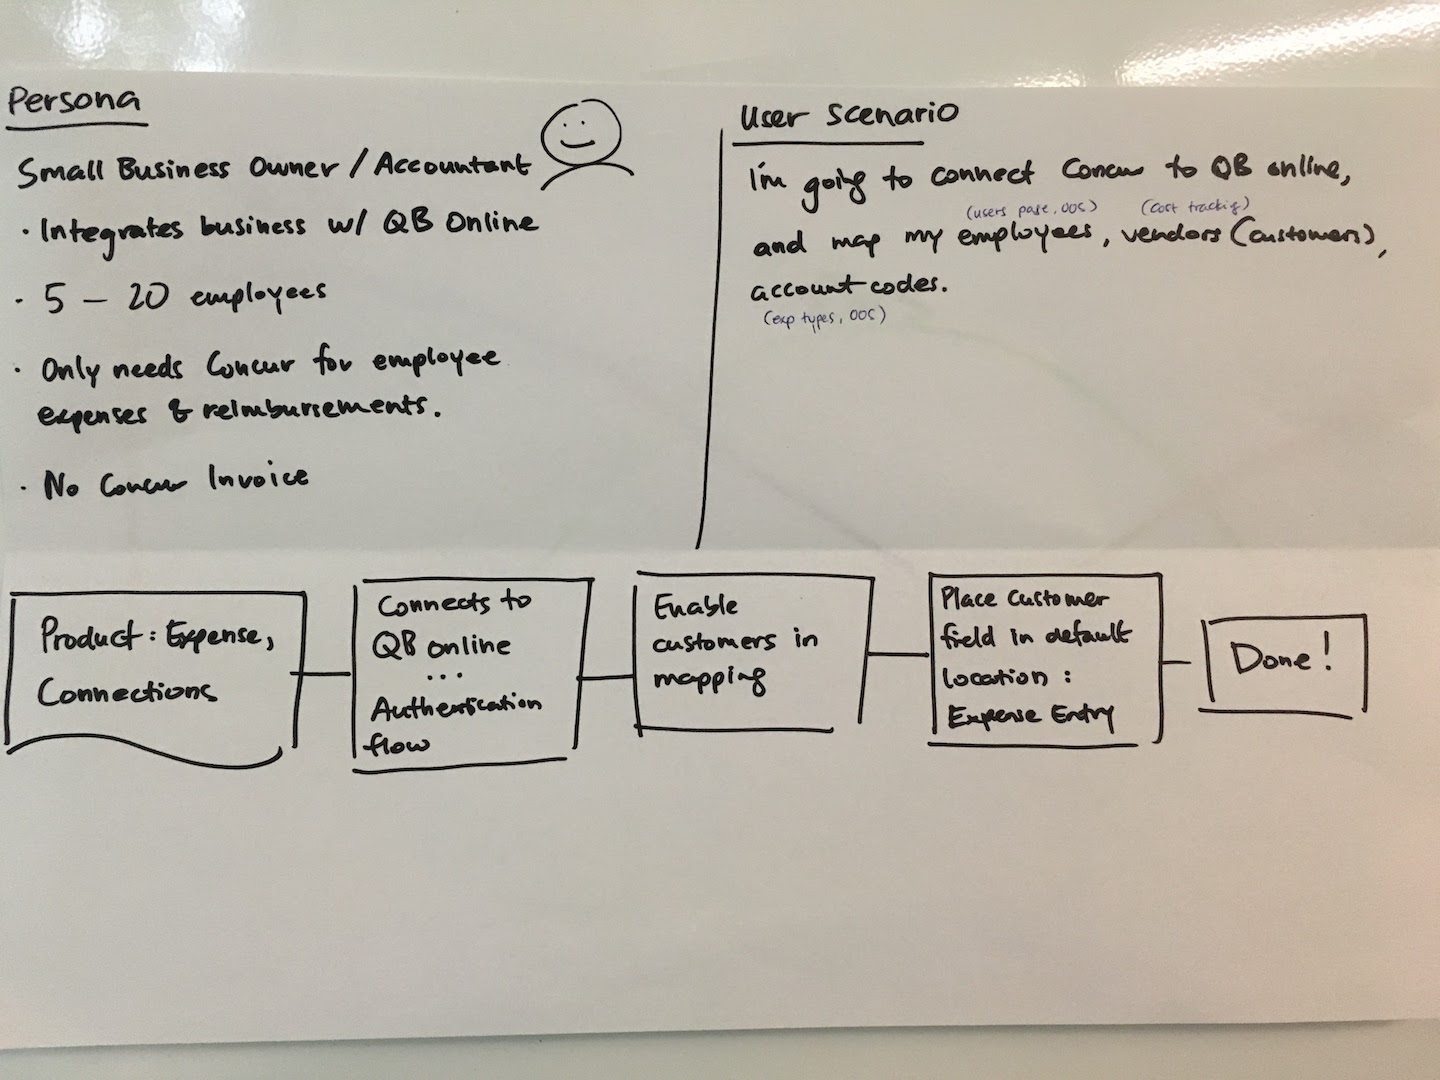 Persona
Small Business Owner / Accountant
· Integrates business w/ QB Online
· 5 – 20 employees
· Only needs Concur for employee
expenses & reimbursements.
· No Concur Invoice
User Scenario
I'm going to connect Concur to QB online,
(users page, OOS) (cost tracking)
and map my employees, vendors (customers),
account codes.
(exp types, OOS)
Product: Expense,
Connections
Connects to
QB online
...
Authentication
flow
Enable
customers in
mapping
Place Customer
field in default
location:
Expense Entry
Done!